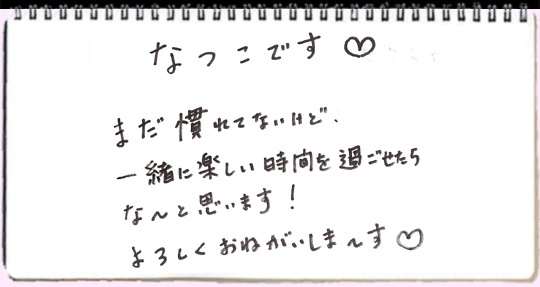 なつこです♡
まだ慣れてないけど、
一緒に楽しい時間を過ごせたら
な〜と思います！
よろしくおねがいしま〜す♡